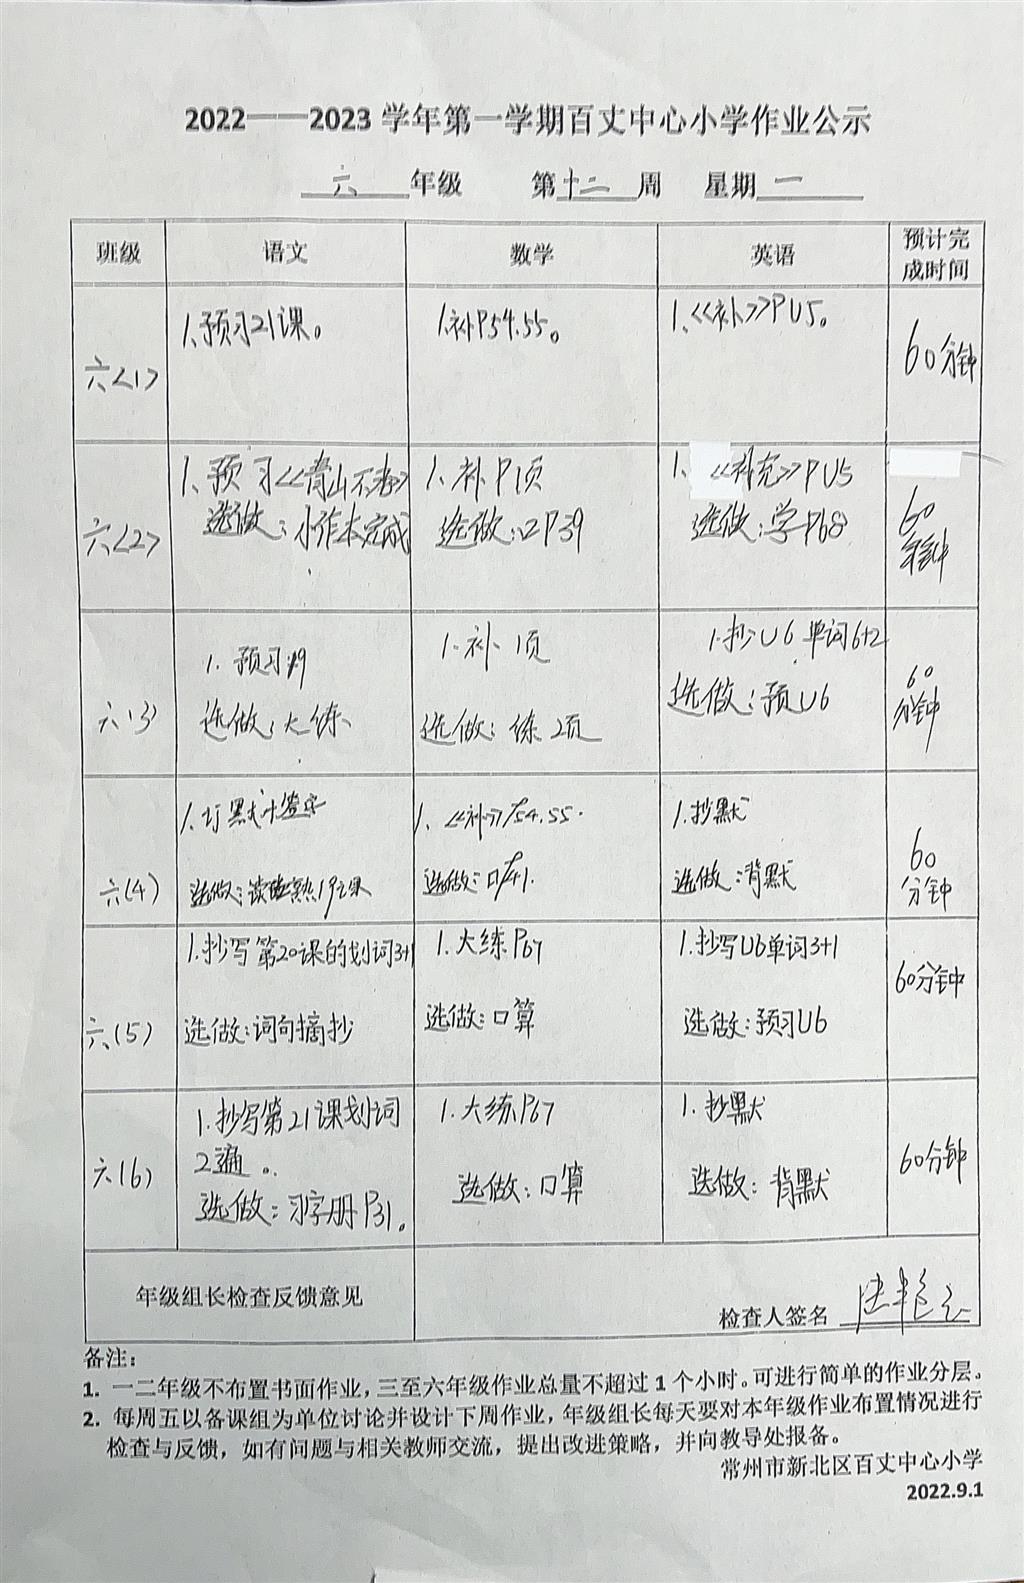 2022——2023 学年第一学期百丈中心小学作业公示
六 年级 第十二周 星期一
班级 语文 数学 英语 预计完成时间
六<1>
1、预习21课。
1.补P54.55。
1、《补》PU5。
60分钟
六<2>
1、预习《青山不老》
选做：小作本完成
1、补P1页
选做：口P39
1、《补充》PU5
选做：学P68
60
分钟
六(3)
1. 预习19
选做：大练
1.补1页
选做：练2页
1.抄U6单词6+2
选做：预U6
60
分钟
六(4)
选做：读熟19课
1、《补》P54.55.
选做：口P41.
1.抄默
选做：背默
60
分钟
六(5)
1.抄写第20课的划词3+1
选做：词句摘抄
1.大练P67
选做：口算
1.抄写U6单词3+1
选做：预习U6
60分钟
六(6)
1.抄写第21课划词
2遍。
选做：习字册P31。
1.大练P67
选做：口算
1.抄默
选做：背默
60分钟
年级组长检查反馈意见
检查人签名
备注：
1. 一二年级不布置书面作业，三至六年级作业总量不超过 1 个小时。可进行简单的作业分层。
2. 每周五以备课组为单位讨论并设计下周作业，年级组长每天要对本年级作业布置情况进行
检查与反馈，如有问题与相关教师交流，提出改进策略，并向教导处报备。
常州市新北区百丈中心小学
2022.9.1